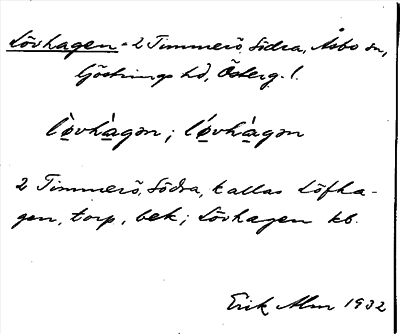 Lövhagen = 2 Timmerö, Södra, Åsbo sn,
Göstrings hd, Österg. l.
lò̤vhà̤gən; ló̤vhà̤gən
2 Timmerö, Södra, kallas Löfha-
gen, torp, bek; Lövhagen kb.
Erik Alm 1932